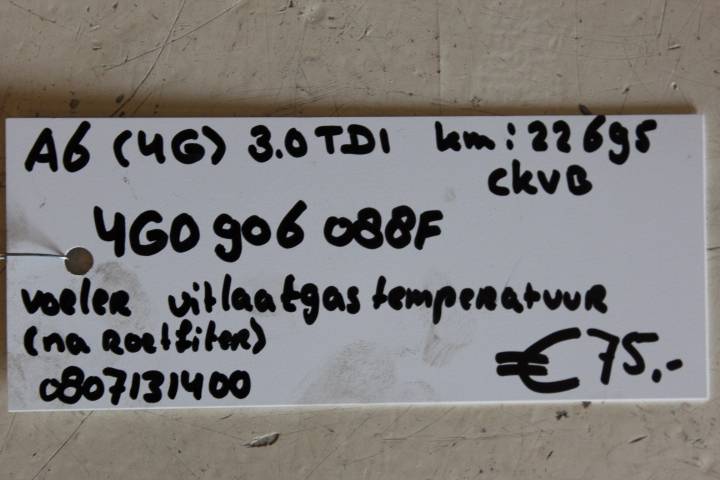 A6 (4G) 3.0 TDI km: 22695
CKVB
4G0 906 088F
voeler uitlaatgas temperatuur
(na Roetfilter)
0807131400
€ 75,-